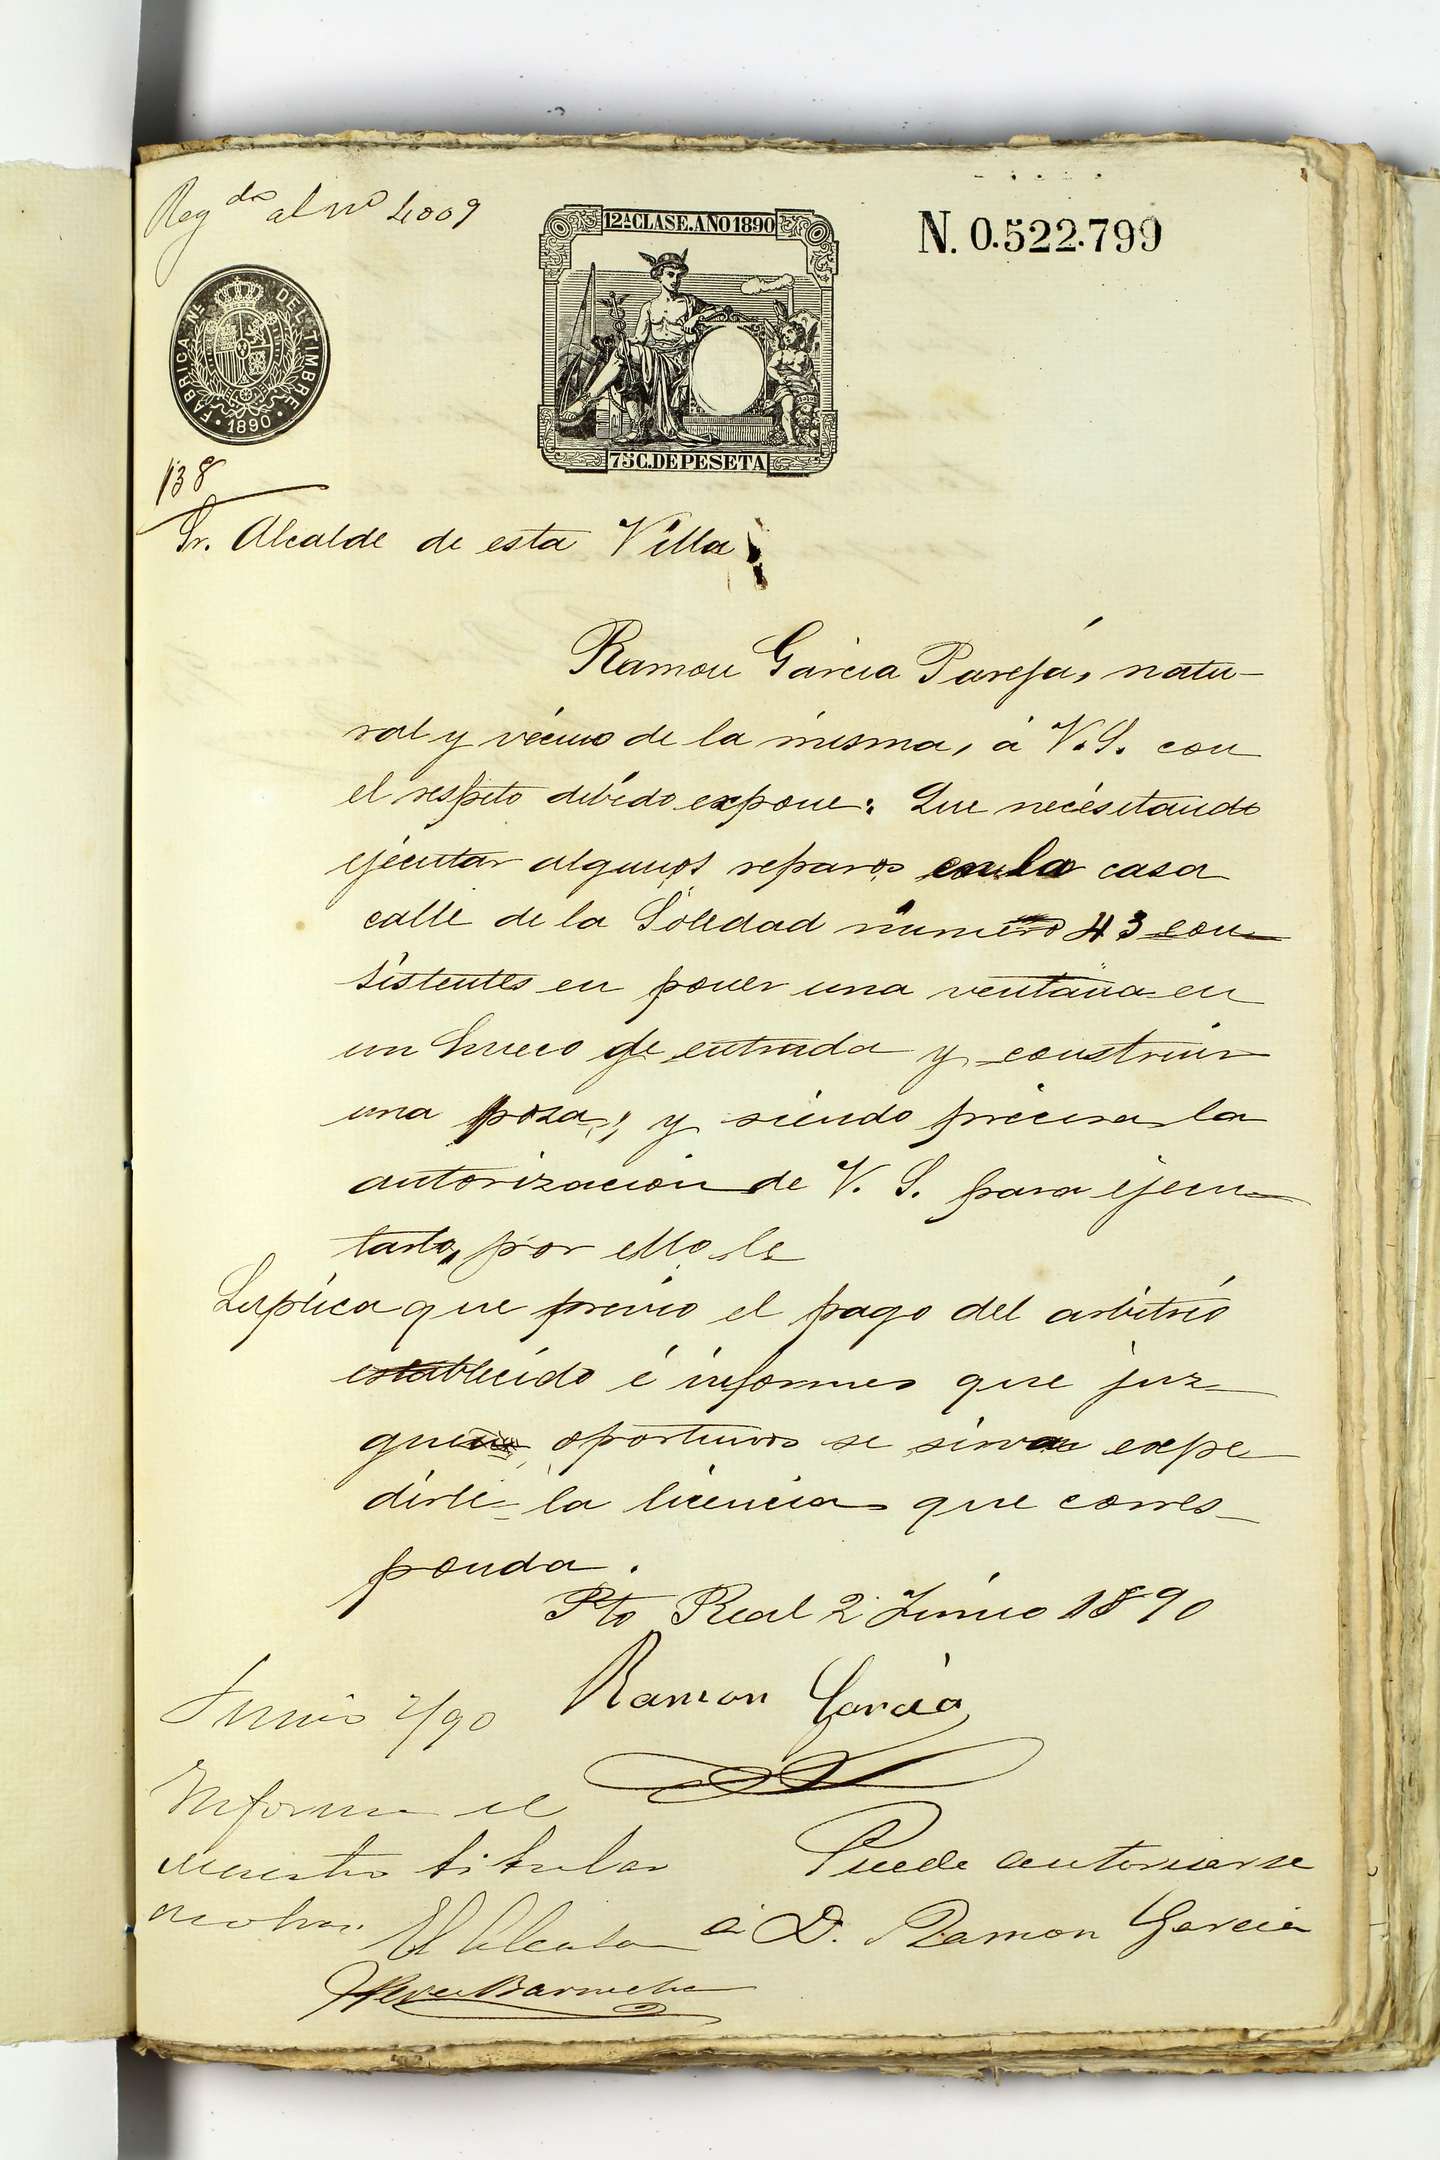 Reg.do al no 4009
12ª CLASE. AÑO 1890
N. 0.522.799
FABRICA Nª DEL TIMBRE
1890
75 C. DE PESETA
138
Sr. Alcalde de esta Villa
Ramon Garcia Pareja, natu-
ral y vecino de la misma, á V.S. con
el respeto debido expone: Que necesitando
ejecutar algunos reparos en la casa
calle de la Soledad número 43 con-
sistentes en poner una ventana en
un hueco de entrada y construir
una poza; y siendo precisa la
autorización de V. S. para ejecu-
tarlo, por ello le
Suplica que previo el pago del arbitrio
establecido é informes que juz-
guen oportunos se sirva expe
dirle la licencia que corres-
ponda.
Pto Real 2 Junio 1890
Ramon Garcia
Junio 2/90
Informe el
maestro titular
de obras.
El Alcalde
Puede autorizarse
á D. Ramon Garcia